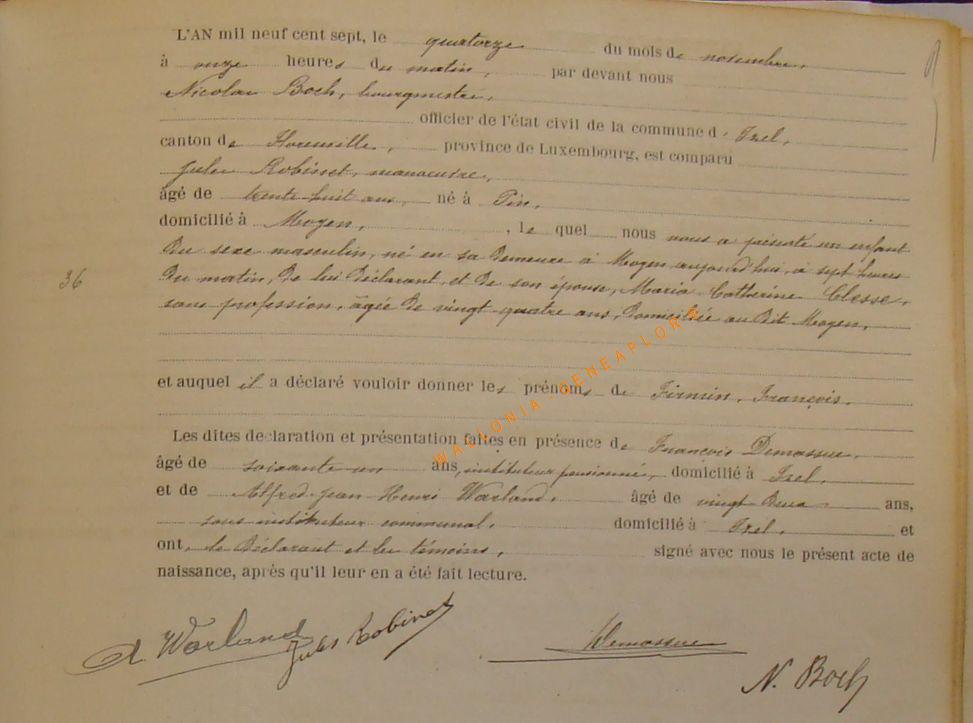 L'AN mil neuf cent sept, le quatorze du mois de novembre,
à onze heures du matin, par devant nous
Nicolas Boch, bourgmestre,
officier de l'état civil de la commune d'Izel,
canton de Florenville, province de Luxembourg, est comparu
Jules Robinet, manoeuvre,
âgé de trente huit ans, né à Pin,
domicilié à Moyen, le quel nous nous a présenté un enfant
du sexe masculin, né en sa demeure à Moyen aujourd'hui, à sept heures
36
du matin, de lui déclarant, et de son épouse, Maria Catherine Clesse,
sans profession, âgée de vingt quatre ans, domiciliée au dit Moyen,
et auquel il a déclaré vouloir donner les prénoms de Firmin, François.
Les dites declaration et présentation faites en présence de François Demasure,
âgé de soixante un ans, instituteur pensionné, domicilié à Izel,
et de Alfred Jean Henri Warland, âgé de vingt deux ans,
sous instituteur communal, domicilié à Izel, et
ont, le déclarant et les témoins, signé avec nous le présent acte de
naissance, après qu'il leur en a été fait lecture.
A. Warland Jules Robinet Demasure
N. Boch
WALLONIA-GENEAPLORE